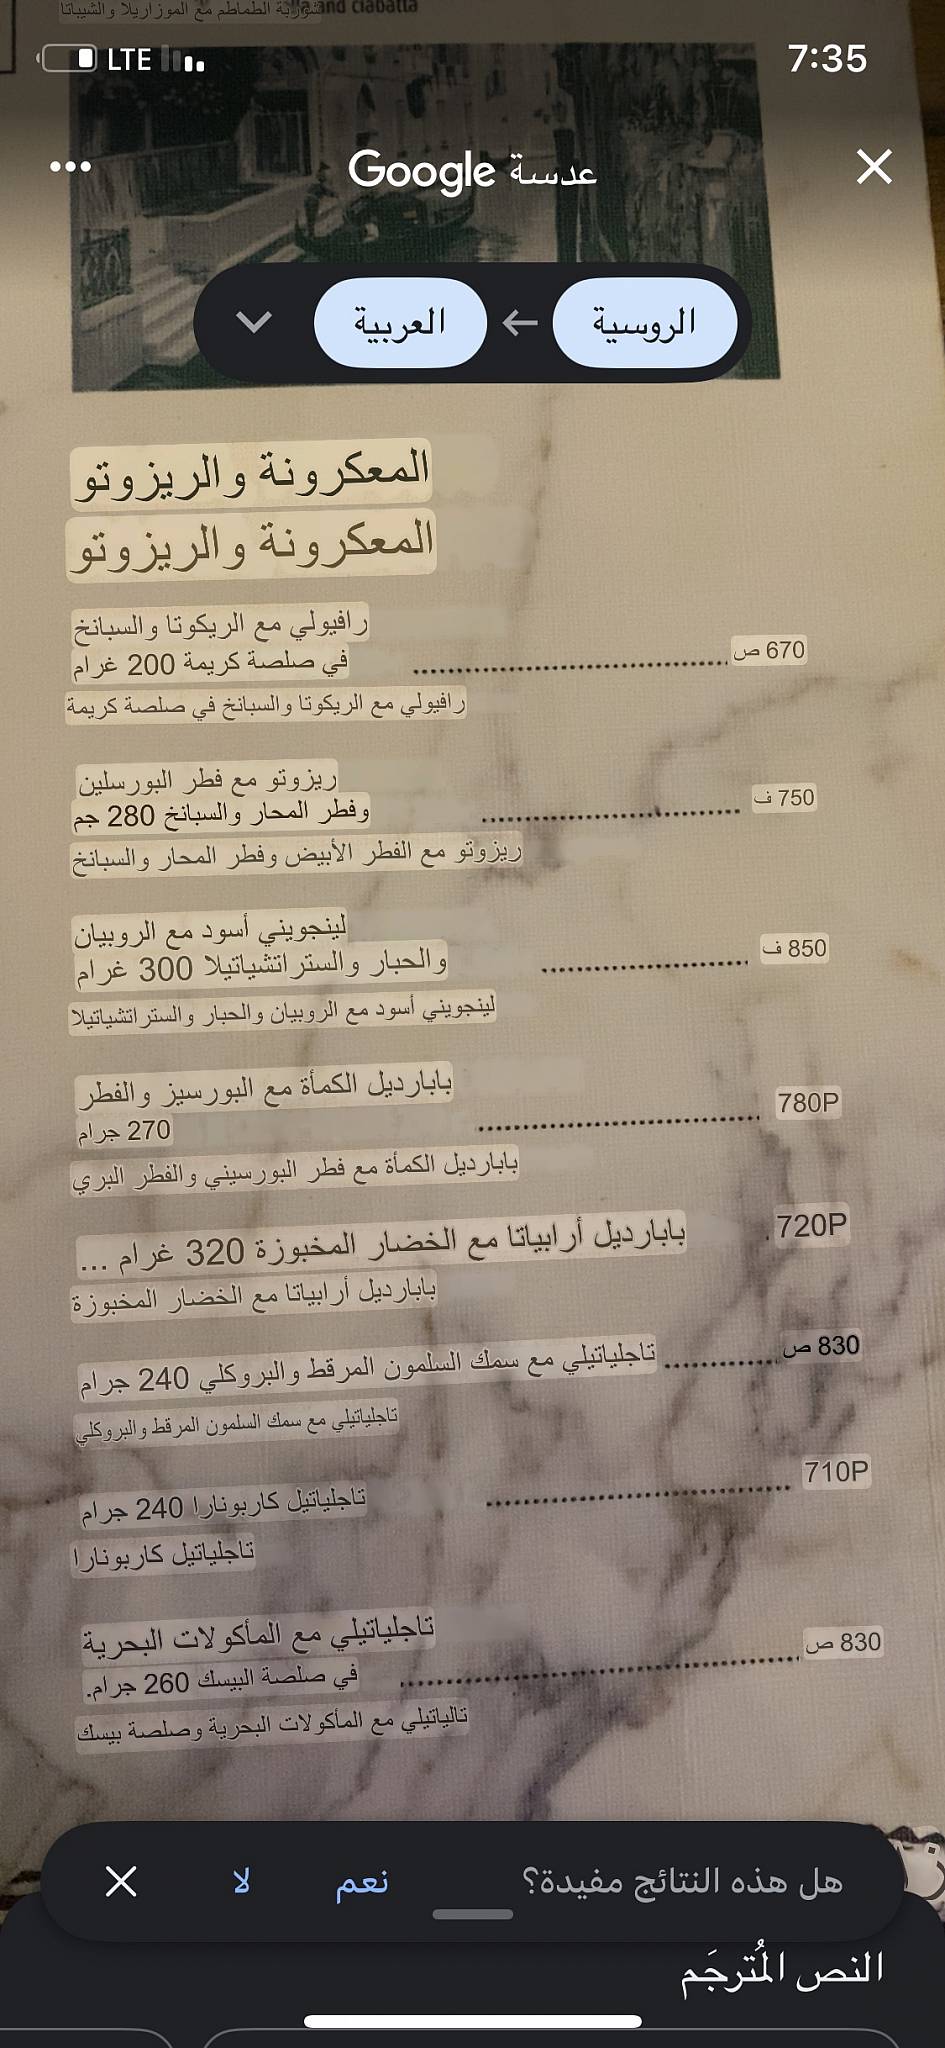 شوربة الطماطم مع الموزاريلا والشيباتا
and ciabatta
LTE
7:35
عدسة Google
الروسية
العربية
المعكرونة والريزوتو
المعكرونة والريزوتو
رافيولي مع الريكوتا والسبانخ
في صلصة كريمة 200 غرام
670 ص
رافيولي مع الريكوتا والسبانخ في صلصة كريمة
ريزوتو مع فطر البورسلين
وفطر المحار والسبانخ 280 جم
750 ف
ريزوتو مع الفطر الأبيض وفطر المحار والسبانخ
لينجويني أسود مع الروبيان
والحبار والستراتشياتيلا 300 غرام
850 ف
لينجويني أسود مع الروبيان والحبار والستراتشياتيلا
بابارديل الكمأة مع البورسيز والفطر
270 جرام
780P
بابارديل الكمأة مع فطر البورسيني والفطر البري
بابارديل أرابياتا مع الخضار المخبوزة 320 غرام ...
720P
بابارديل أرابياتا مع الخضار المخبوزة
تاجلياتيلي مع سمك السلمون المرقط والبروكلي 240 جرام
830 ص
تاجلياتيلي مع سمك السلمون المرقط والبروكلي
تاجلياتيل كاربونارا 240 جرام
710P
تاجلياتيل كاربونارا
تاجلياتيلي مع المأكولات البحرية
في صلصة البيسك 260 جرام.
830 ص
تالياتيلي مع المأكولات البحرية وصلصة بيسك
هل هذه النتائج مفيدة؟
نعم
لا
النص المُترجَم